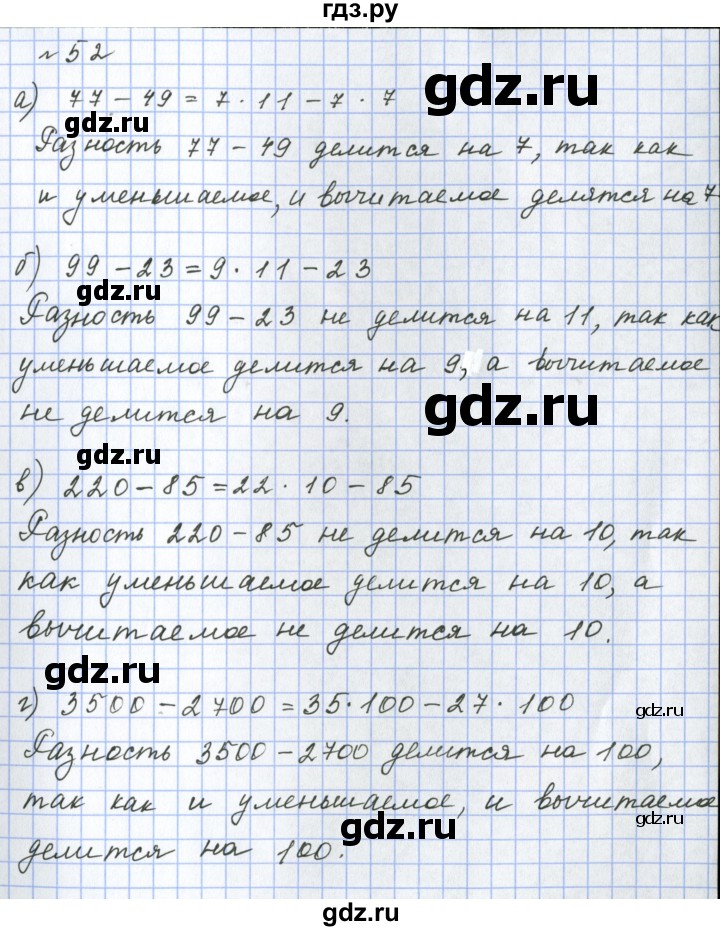 гдз.ру
№52
gdz.ru
а) 77 - 49 = 7 · 11 - 7 · 7
gdz.ru
Разность 77 - 49 делится на 7, так как
и уменьшаемое, и вычитаемое делятся на 7
б) 99 - 23 = 9 · 11 - 23
gdz.ru
Разность 99 - 23 не делится на 11, так как
уменьшаемое делится на 9, а вычитаемое
gdz.ru
не делится на 9.
gdz.ru
в) 220 - 85 = 22 · 10 - 85
Разность 220 - 85 не делится на 10, так
как уменьшаемое делится на 10, а
вычитаемое не делится на 10.
gdz.ru
г) 3500 - 2700 = 35 · 100 - 27 · 100
gdz.ru
Разность 3500 - 2700 делится на 100,
так как и уменьшаемое, и вычитаемое
gdz.ru
gdz.ru
делится на 100.
gdz.ru